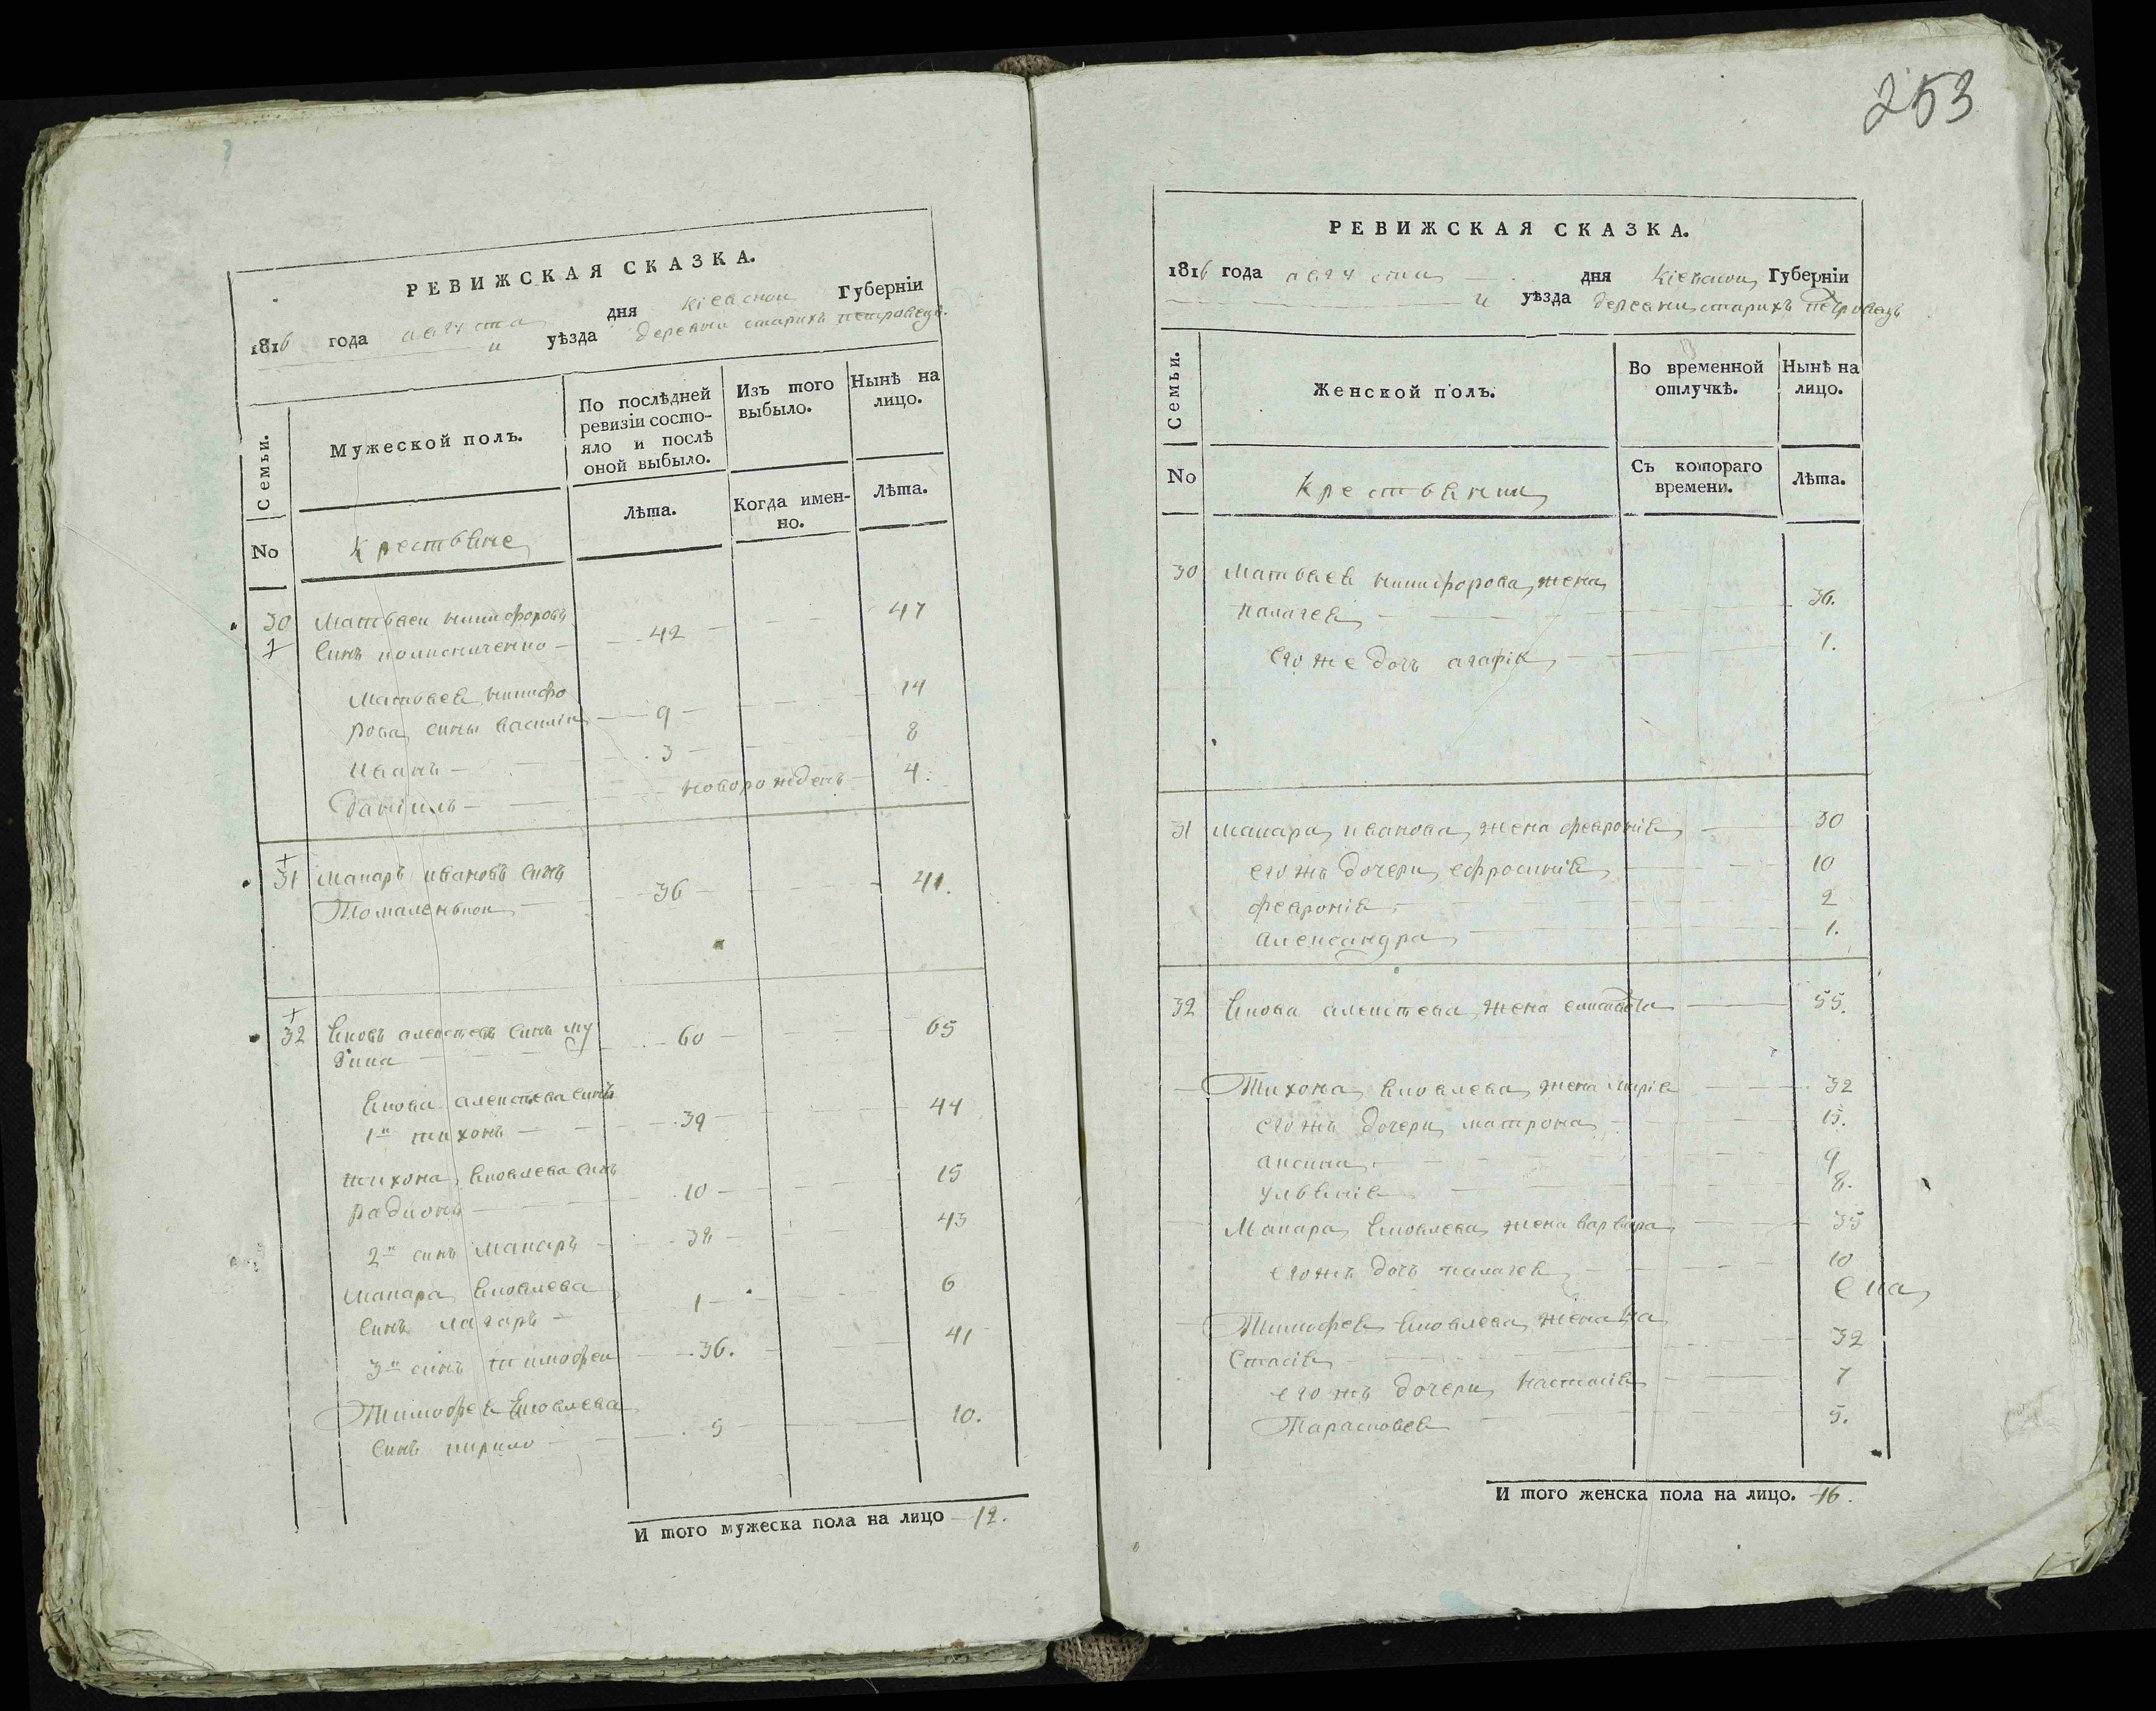 253
РЕВИЖСКАЯ СКАЗКА.
1816 года августа дня кіевской Губерніи
и уѣзда деревни старихъ петровецъ.
Семьи.
Мужеской полъ.
По послѣдней ревизіи состояло и послѣ оной выбыло.
Изъ того выбыло.
Нынѣ на лицо.
No
крестьяне
Лѣта.
Когда именно.
Лѣта.
30 Матвей никифоровъ
синъ 42 47
Матвея никифо
рова сини василій 9 14
иванъ 3 8
даніилъ новорожденъ 4.
31 Макаръ ивановъ синъ
36 41.
32 яковъ алексеевъ синъ му
зика 60 65
якова алексеева синъ
1й тихонъ 39 44
тихона яковлева синъ
радионъ 10 15
2й синъ Макаръ 38 43
Макара яковлева
синъ лазаръ 1 6
3й синъ тимофей 36. 41
Тимофея яковлева
синъ кирило 5 10.
И того мужеска пола на лицо 12.
РЕВИЖСКАЯ СКАЗКА.
1816 года августа дня кіевской Губерніи
и уѣзда деревни старихъ петровецъ
Семьи.
Женской полъ.
Во временной отлучкѣ.
Нынѣ на лицо.
No
крестьянки
Съ котораго времени.
Лѣта.
30 Матвея никифорова жена
палагея 36.
его же дочъ агафія 1.
31 макара иванова жена февронія 30
его жъ дочери ефросинія 10
февронія 2
александра 1.
32 якова алексеева жена 55.
Тихона яковлева жена марія 32
его жъ дочери матрона 15.
аксина 9
ульянія 8.
Макара яковлева жена варвара 35
его жъ дочъ палагея 10
Тимофея яковлева жена на
стасія 32
его жъ дочери настасія 7
Парасковея 5.
И того женска пола на лицо. 16.